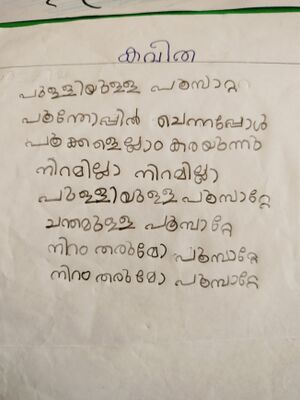 കവിത
പുള്ളിയുള്ള പൂമ്പാറ്റ
പൂന്തോപ്പിൽ ചെന്നപ്പോൾ
പൂക്കളെല്ലാം കരയുന്നു
നിറമില്ലാ നിറമില്ലാ
പുള്ളിയുള്ള പൂമ്പാറ്റേ
ചന്തമുള്ള പൂമ്പാറ്റേ
നിറം തരുമോ പൂമ്പാറ്റേ
നിറം തരുമോ പൂമ്പാറ്റേ